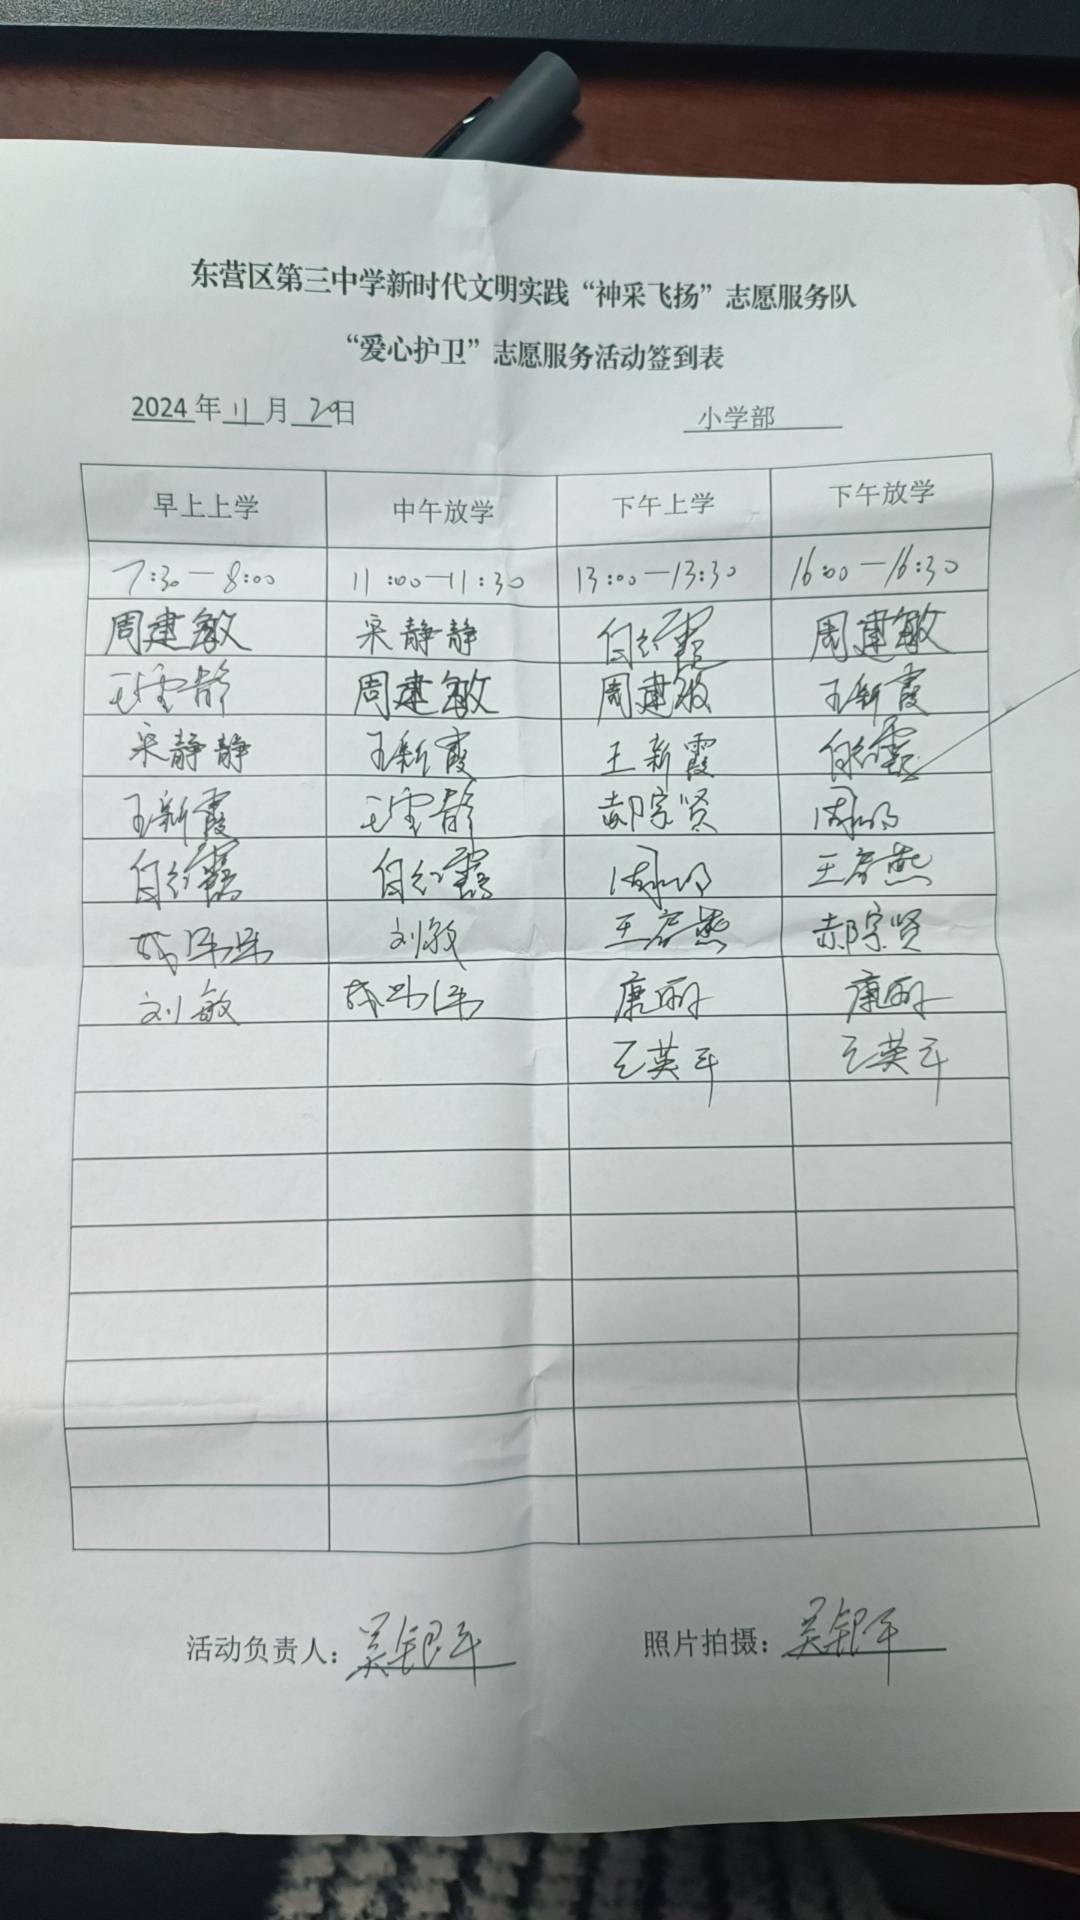 东营区第三中学新时代文明实践“神采飞扬”志愿服务队
“爱心护卫”志愿服务活动签到表
2024年11月20日 小学部
早上上学 中午放学 下午上学 下午放学
7:30—8:00 11:00—11:30 13:00—13:30 16:00—16:30
周建敏 宋静静 周建敏
周建敏 周建敏 王新霞
宋静静 王新霞 王新霞
王新霞 郝宗贤
王彦燕
刘敏 王彦燕 郝宗贤
刘敏 康丽 康丽
王英军 王英军
活动负责人：吴银军 照片拍摄：吴银军